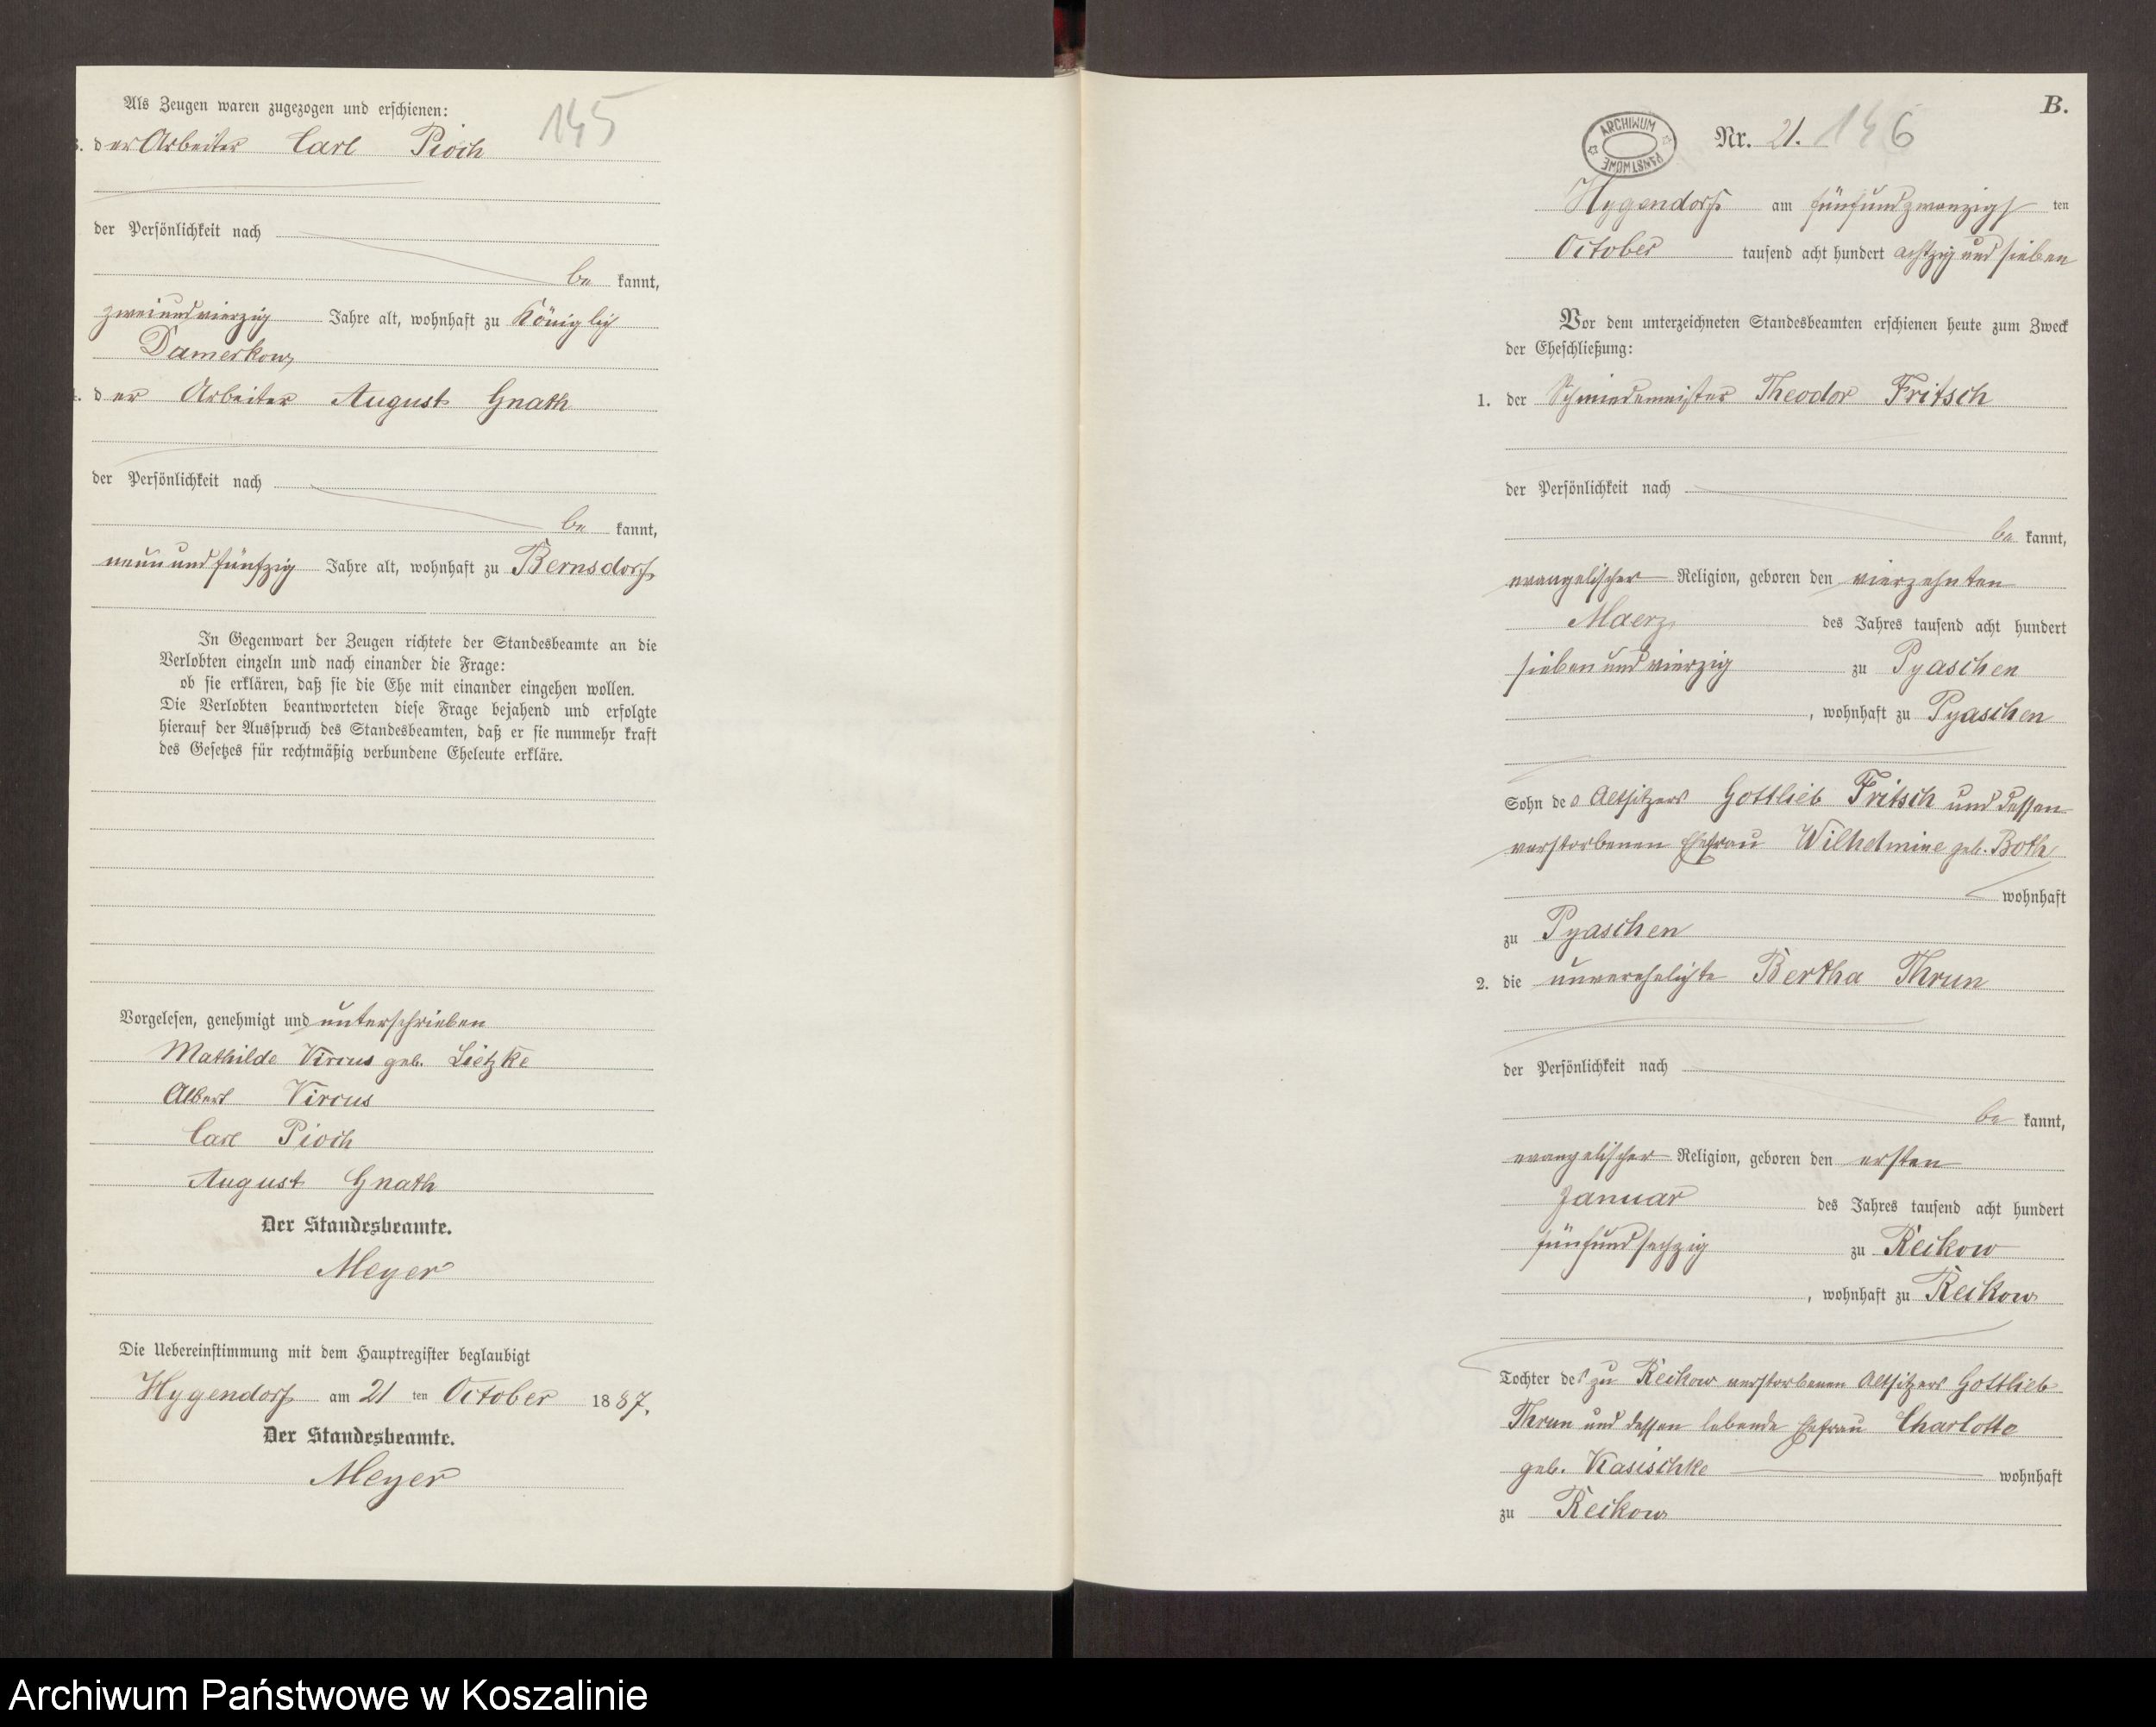 145
Als Zeugen waren zugezogen und erschienen:
3. der Arbeiter Carl Pioch
der Persönlichkeit nach
be kannt,
zweiundvierzig Jahre alt, wohnhaft zu Königlich
Damerkow,
4. der Arbeiter August Gnath
der Persönlichkeit nach
be kannt,
neunundfünfzig Jahre alt, wohnhaft zu Bernsdorf,
In Gegenwart der Zeugen richtete der Standesbeamte an die
Verlobten einzeln und nach einander die Frage:
ob sie erklären, daß sie die Ehe mit einander eingehen wollen.
Die Verlobten beantworteten diese Frage bejahend und erfolgte
hierauf der Ausspruch des Standesbeamten, daß er sie nunmehr kraft
des Gesetzes für rechtmäßig verbundene Eheleute erkläre.
Vorgelesen, genehmigt und unterschrieben
Mathilde Vircus geb. Lietzke
Albert Vircus
Carl Pioch
August Gnath
Der Standesbeamte.
Meyer
Die Uebereinstimmung mit dem Hauptregister beglaubigt
Hygendorf am 21 ten October 1887.
Der Standesbeamte.
Meyer
B.
ARCHIWUM PAŃSTWOWE
Nr. 21. 146
Hygendorf am fünfundzwanzigsten
October tausend acht hundert achtzig und sieben
Vor dem unterzeichneten Standesbeamten erschienen heute zum Zweck
der Eheschließung:
1. der Schmiedemeister Theodor Fritsch
der Persönlichkeit nach
be kannt,
evangelischer Religion, geboren den vierzehnten
Maerz des Jahres tausend acht hundert
sieben und vierzig zu Pyaschen
, wohnhaft zu Pyaschen
Sohn des Altsitzers Gottlieb Fritsch und dessen
verstorbenen Ehefrau Wilhelmine geb. Both
wohnhaft
zu Pyaschen
2. die unverehelichte Bertha Thrun
der Persönlichkeit nach
be kannt,
evangelischer Religion, geboren den ersten
Januar des Jahres tausend acht hundert
fünfundsechzig zu Reikow
, wohnhaft zu Reikow
Tochter des zu Reikow verstorbenen Altsitzers Gottlieb
Thrun und dessen lebende Ehefrau Charlotte
geb. Kasischke wohnhaft
zu Reikow
Archiwum Państwowe w Koszalinie